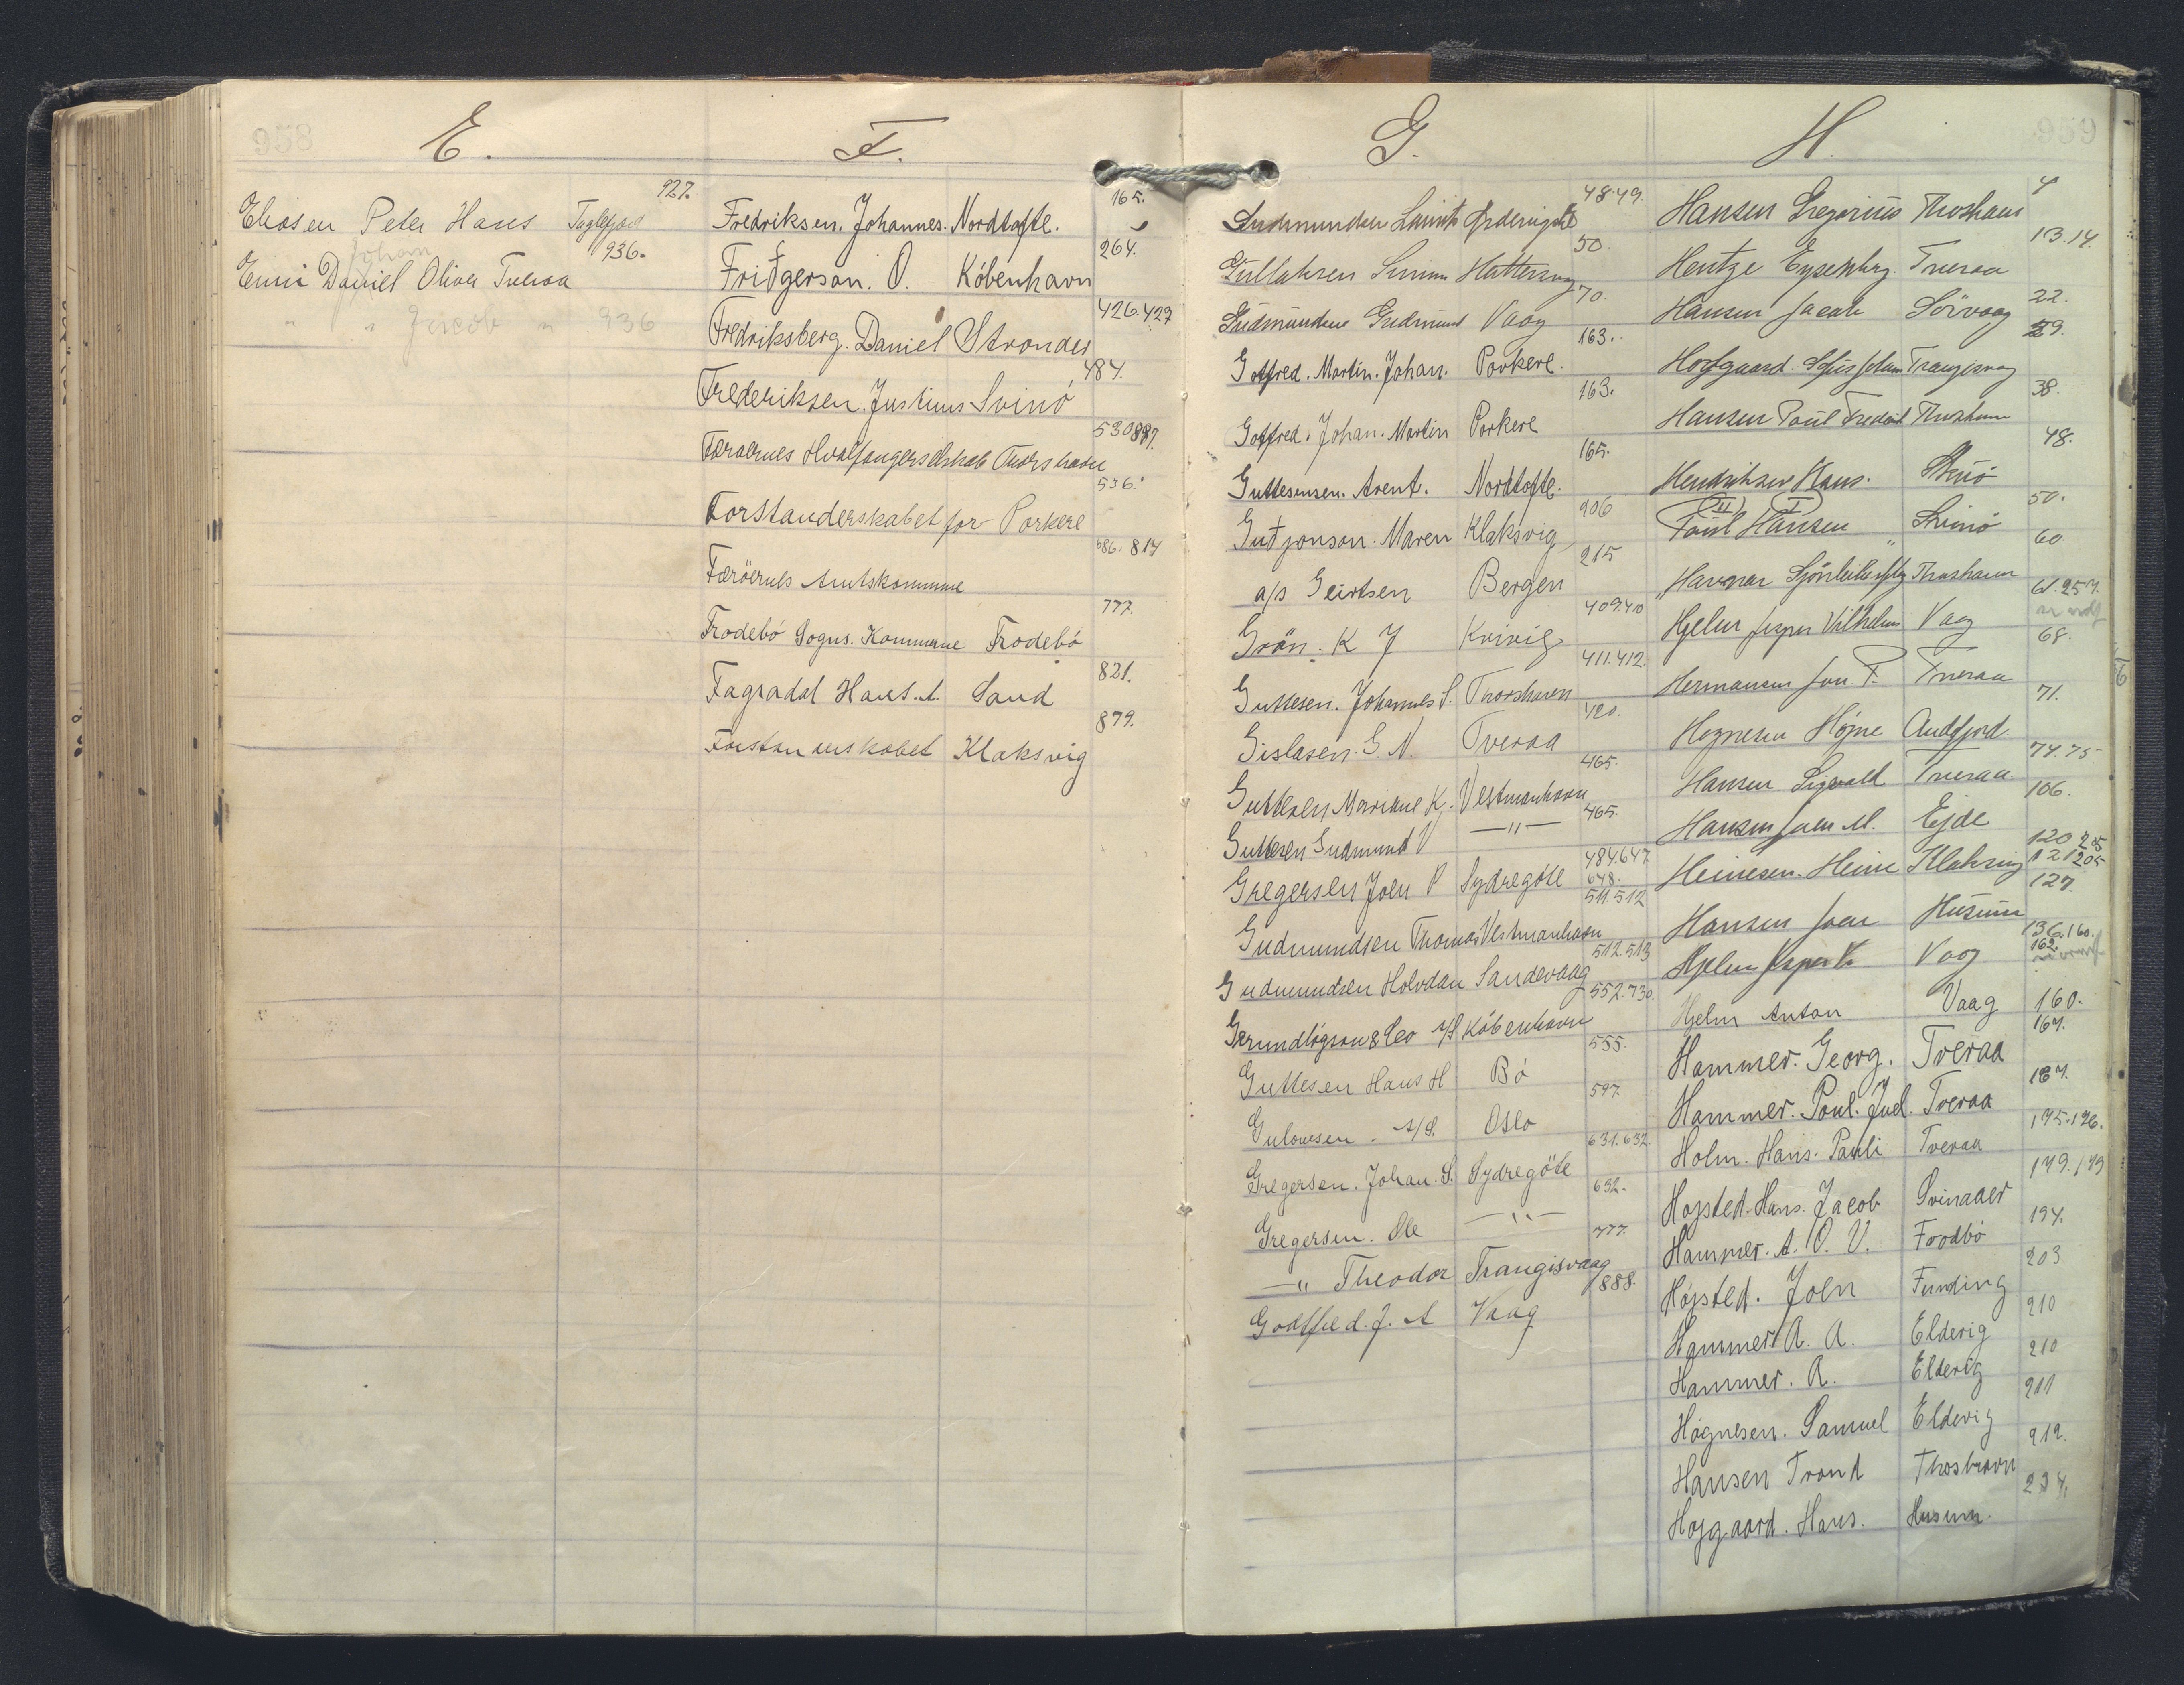 958
E.
Eliasen Peter Hans Fuglefjord 927.
Johan
Enni Daniel Oliver Tveraa 936.
" " Jacob " 936
F.
Fredriksen. Johannes. Nordtofte. 165.
Friðgerson. O. København 264.
Fredriksberg. Daniel Strender 426.427
Frederiksen. Justinus Svinó 484.
Færøernes Hvalfangerselskab Thorshavn 530 887.
Forstanderskabet for Porkere 536.
Færöernes Amtskommune 586. 814
Frodebó Sogns. Kommune Frodebó 777.
Fagradal Hans. A. Sand 821.
Forstanderskabet Klaksvig 879.
G.
Gudmundsen 48.49.
Simun Hattervig 50.
Gudmundsen Gudmund Vaag 70.
Gotfred. Martin. Johan. Porkere. 163.
Gotfred. Johan. Martin Porkere 163.
Guttesensen. Arent. Nordtofte. 165.
Guðjonson. Maren Klaksvig 206
a/s Geirtsen Bergen 215
Grön. K J Kvivig 409.410
Guttesen. Johannes S. Thorshavn 411.412.
Gislasen. G. N. Tveraa 420.
Guttesen Marikus K. Vestmanhavn 465.
Guttesen Gudmund V —"— 465.
Gregersen Joen P Sydregöte 484.647 648.
Gudmundsen Thomas Vestmanhavn 511.512
Gudmundsen Halvdan Sandevaag 512.513
& Co A/S København 552.730.
Guttesen Hans H Bó 555.
Gulowsen. A/S. Oslo 597.
Gregersen. Johan. S. Sydregöte 631.632
Gregersen. Ole —"— 632.
—" Theodor Trangisvaag 777.
Godtfred. J. A Vaag 888.
H.
959
Hansen Gregorius Thorshavn 4
Hentze Tveraa 13.14.
Hansen Jacob Sörvaag 22.
Hofgaard. Johan Trangisvaag 29.
Hansen Poul Frederik Thorshavn 38.
Hendriksen Hans. Skuö 48.
Poul Hansen " Svinó 50.
Havnar Thorshavn 60.
Hjelm Jesper Vilhelm Vaag 61.257.
Hermansen Jon. P. Tveraa 68.
Hognesen Högne Andfjord. 71.
Hansen Sigvald Tveraa 74.75.
Hansen Joen M. Ejde 106.
Heinesen. Heine Klaksvig 120 205 121 205
Hansen Joen Husum 127.
Hjelm Jesper V. Vaag 136.160. 162.
Hjelm Anton Vaag 160.
Hammer. Georg. Tveraa 167.
Hammer. Poul. Juel. Tveraa 167.
Holm. Hans. Pauli Tveraa 175.176.
Hojsted. Hans. Jacob Svinaaer 179.179
Hammer. A. O. V. Frodbó 194.
Hójsted. Joen Funding 203
Hammer A. A. Eldevig 210
Hammer. A. Eldevig 210
Hógnesen. Samuel Eldevig 211
Hansen Trond Thorshavn 212.
Hojgaard. Hans. Husum. 234.